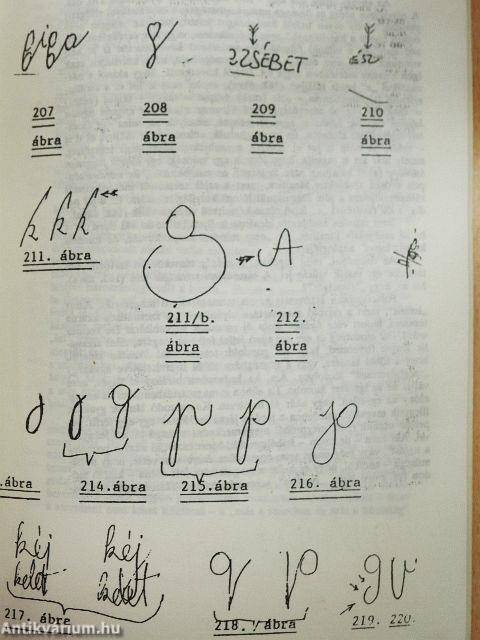 giga 8 ZSÉBET ÉSZ
207 208 209 210
ábra ábra ábra ábra
k k k
211. ábra
8 A
211/b. 212.
ábra ábra
g g p p p
.ábra 214.ábra 215.ábra 216. ábra
kéj kéj
q p gv
217. ábra 218. ábra 219. 220.
Antikvárium.hu